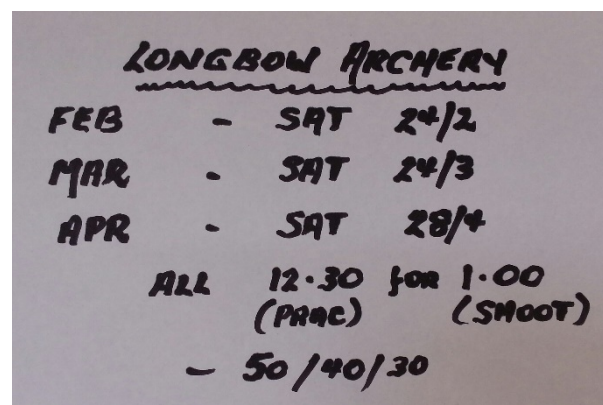 LONGBOW ARCHERY
FEB - SAT 24/2
MAR - SAT 24/3
APR - SAT 28/4
ALL 12.30 for 1.00
(PRAC) (SHOOT)
- 50/40/30